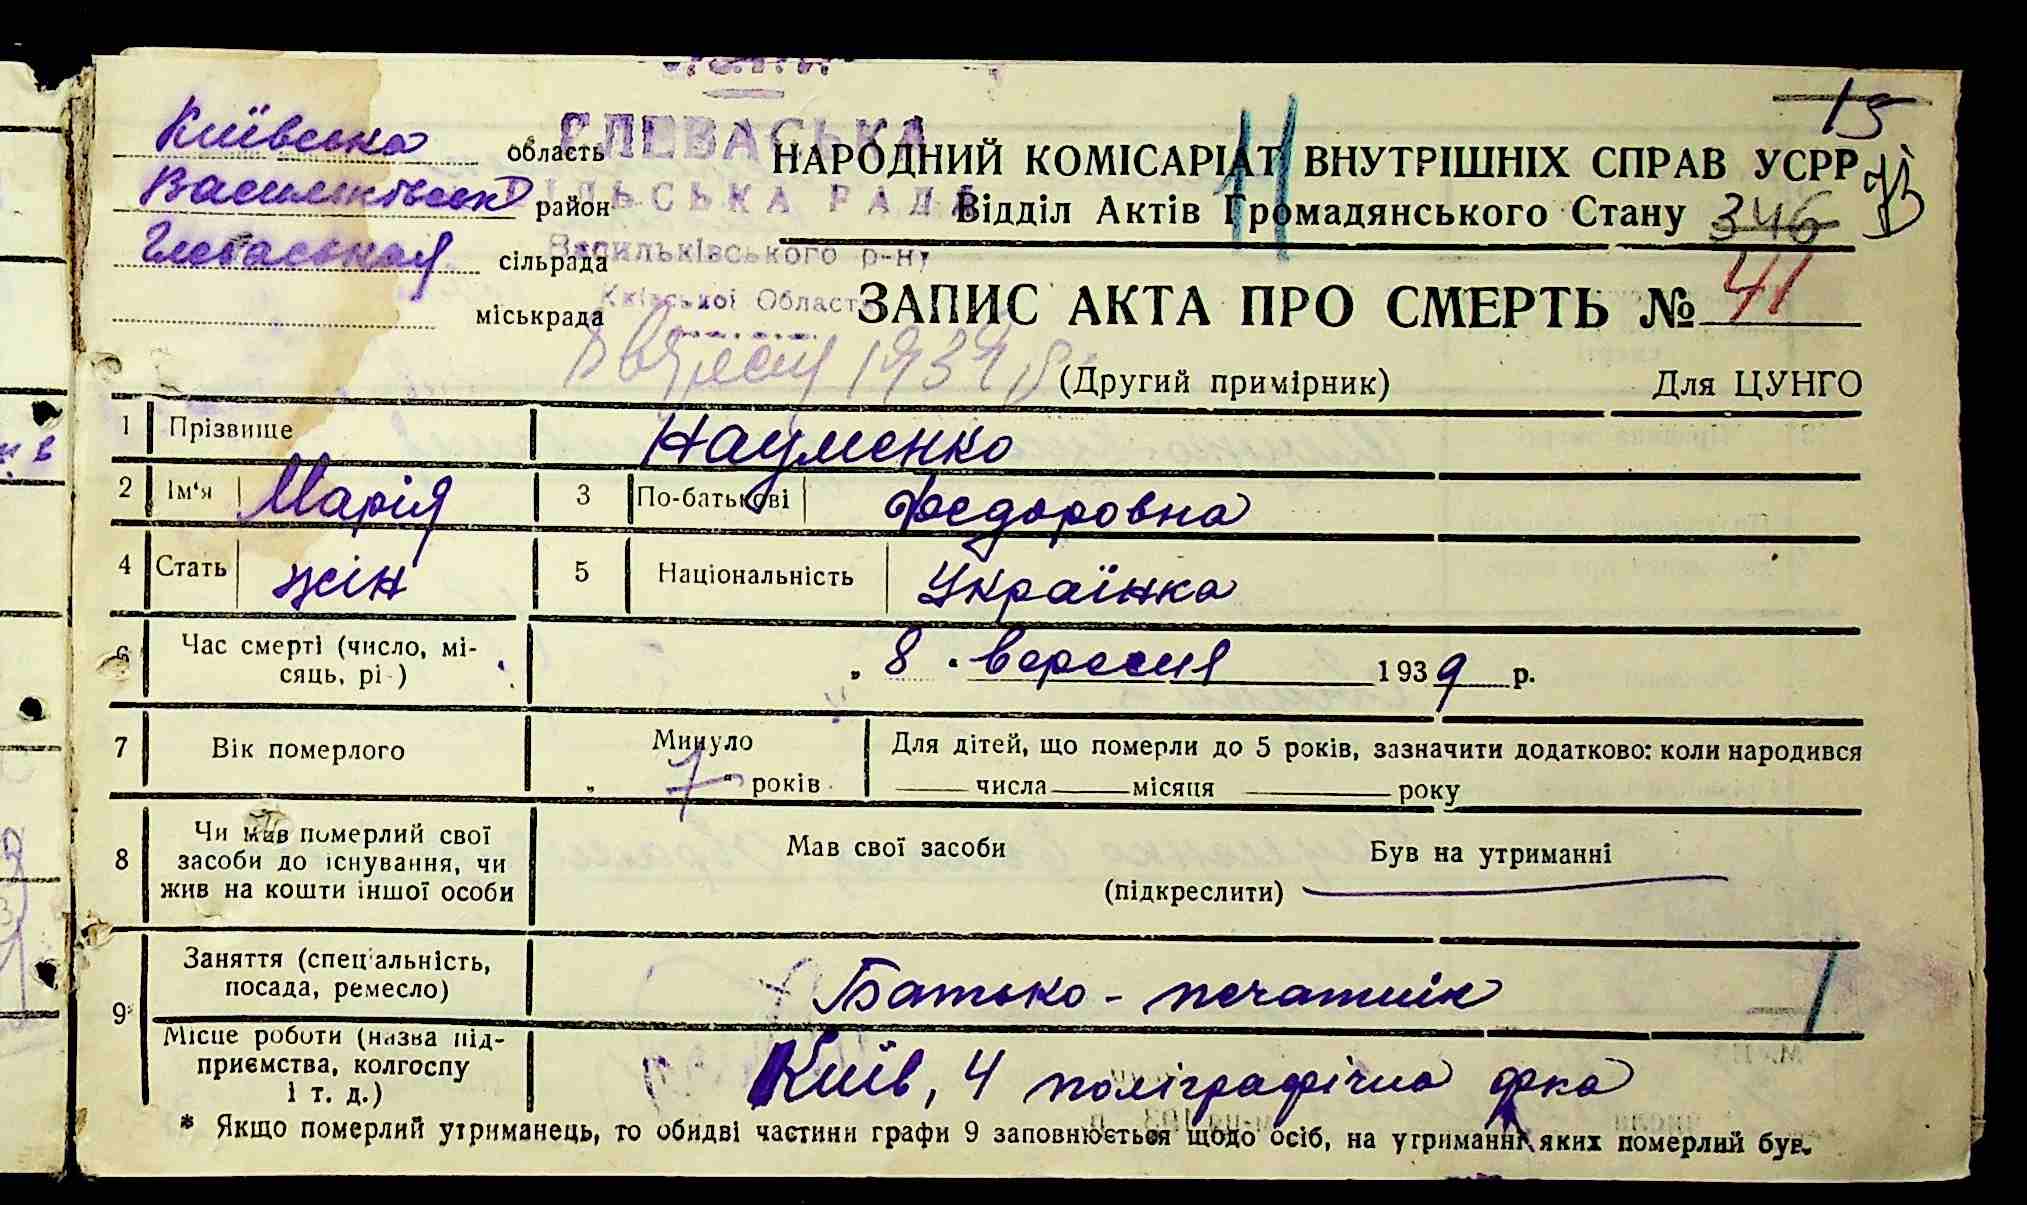 15
Київська область
ГЛЕВАСЬКА
НАРОДНИЙ КОМІСАРІАТ ВНУТРІШНІХ СПРАВ УСРР
11
Васильківськ район
СІЛЬСЬКА РАДА
Відділ Актів Громадянського Стану 346
Глеваськая сільрада
Васильківського р-ну
міськрада
Київської Області
ЗАПИС АКТА ПРО СМЕРТЬ № 41
8 вересня 1939 р.
(Другий примірник) Для ЦУНГО
1 Прізвище Науменко
2 Ім'я Марія 3 По-батькові Федоровна
4 Стать жін 5 Національність Українка
6 Час смерті (число, мі-
сяць, рі ) „ 8 " вересня 1939 р.
7 Вік померлого Минуло
„ 7 " років
Для дітей, що померли до 5 років, зазначити додатково: коли народився
числа місяця року
8 Чи мав померлий свої
засоби до існування, чи
жив на кошти іншої особи
Мав свої засоби Був на утриманні
(підкреслити)
9 Заняття (спеціальність,
посада, ремесло) Батько - печатнік
Місце роботи (назва під-
приємства, колгоспу
і т. д.) Київ, 4 поліграфічна ф-ка
* Якщо померлий утриманець, то обидві частини графи 9 заповнюється щодо осіб, на утриманні яких померлий був.